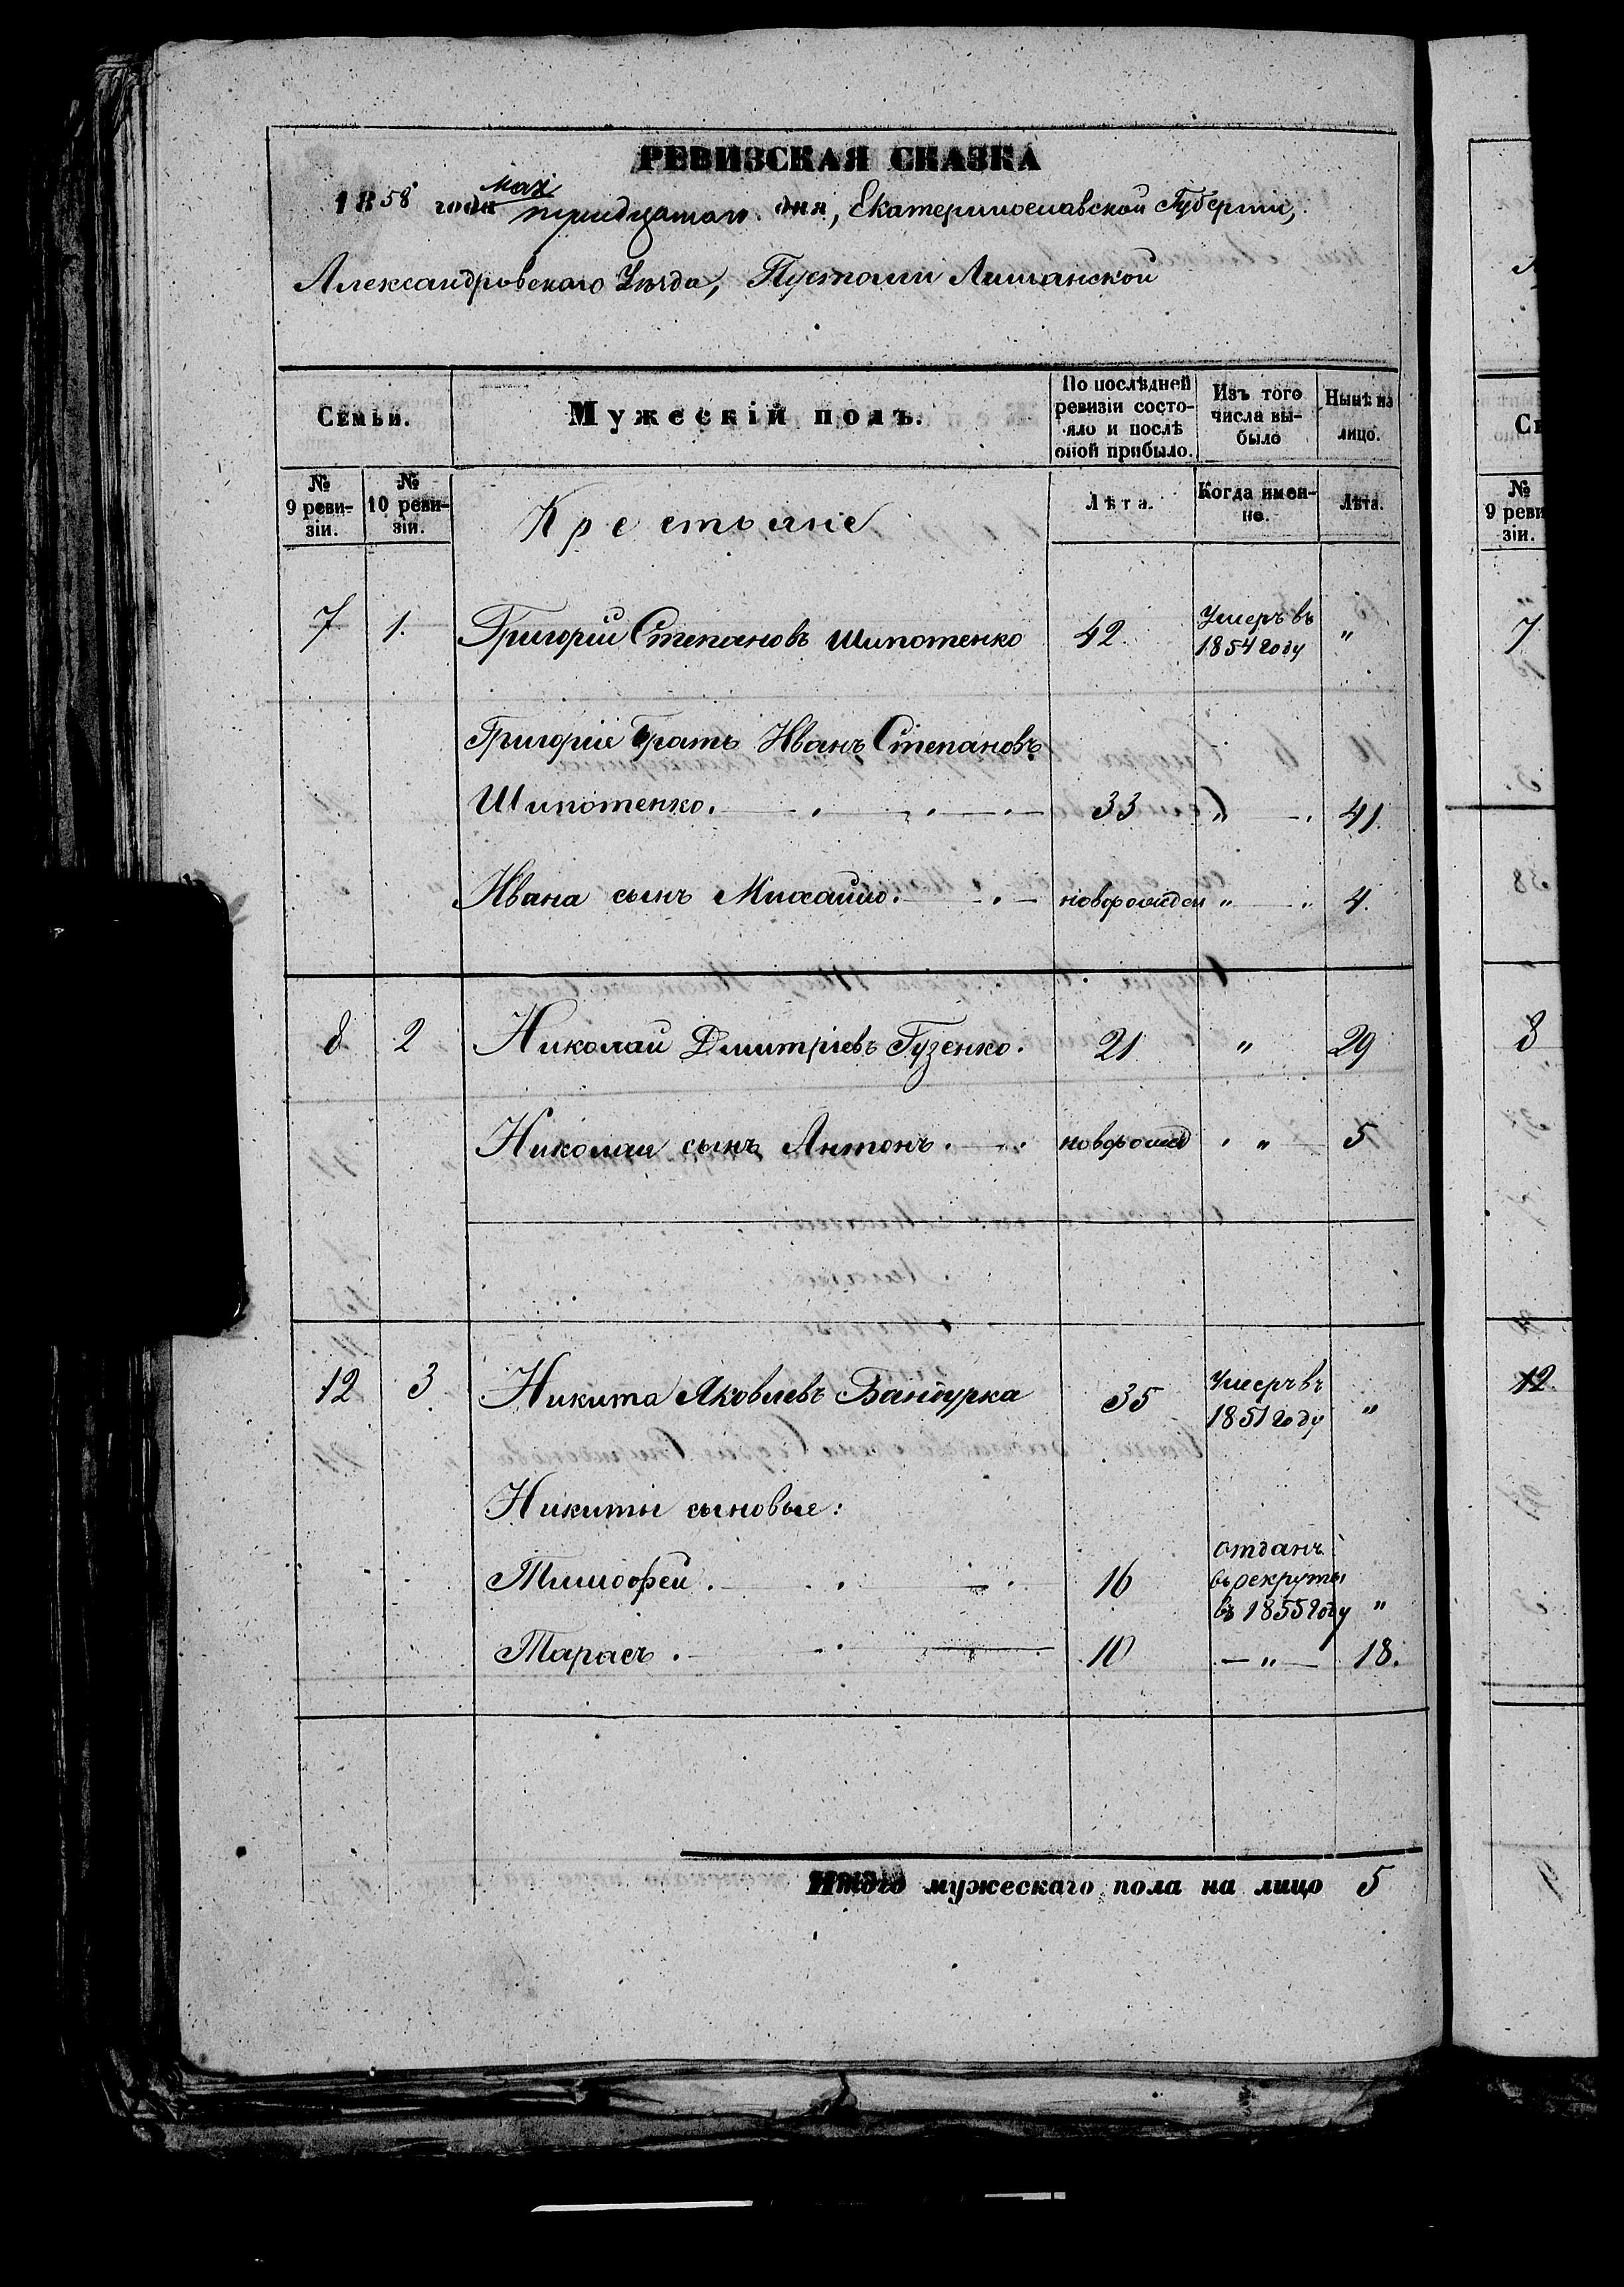 РЕВИЗСКАЯ СКАЗКА
1858 года мая тридцатаго дня, Екатеринославской Губерніи,
Александровскаго Уѣзда, Пустоши
Семьи.
Мужескій полъ.
По послѣдней ревизіи состояло и послѣ оной прибыло.
Изъ того числа выбыло
Нынѣ на лицо.
№ 9 ревизіи.
№ 10 ревизіи.
Крестьяне
Лѣта.
Когда именно.
Лѣта.
7 1. Григорій Степановъ Шипотенко 42 Умеръ въ 1854 году "
Григорія братъ Иванъ Степановъ
Шипотенко. 33 " 41.
Ивана сынъ Михайло. новорожден " 4.
8 2 Николай Дмитріевъ Гузенко. 21 " 29
Николая сынъ Антонъ. новорожд " 5
12 3 Никита Яковлевъ Бандурка 35 Умеръ въ 1851 году "
Никиты сыновье:
Тимофей. 16 отданъ въ рекруты въ 1855 году "
Тарасъ. 10 " 18.
Итого мужескаго пола на лицо 5
Се
№
9 реви
зіи.
7
8
12